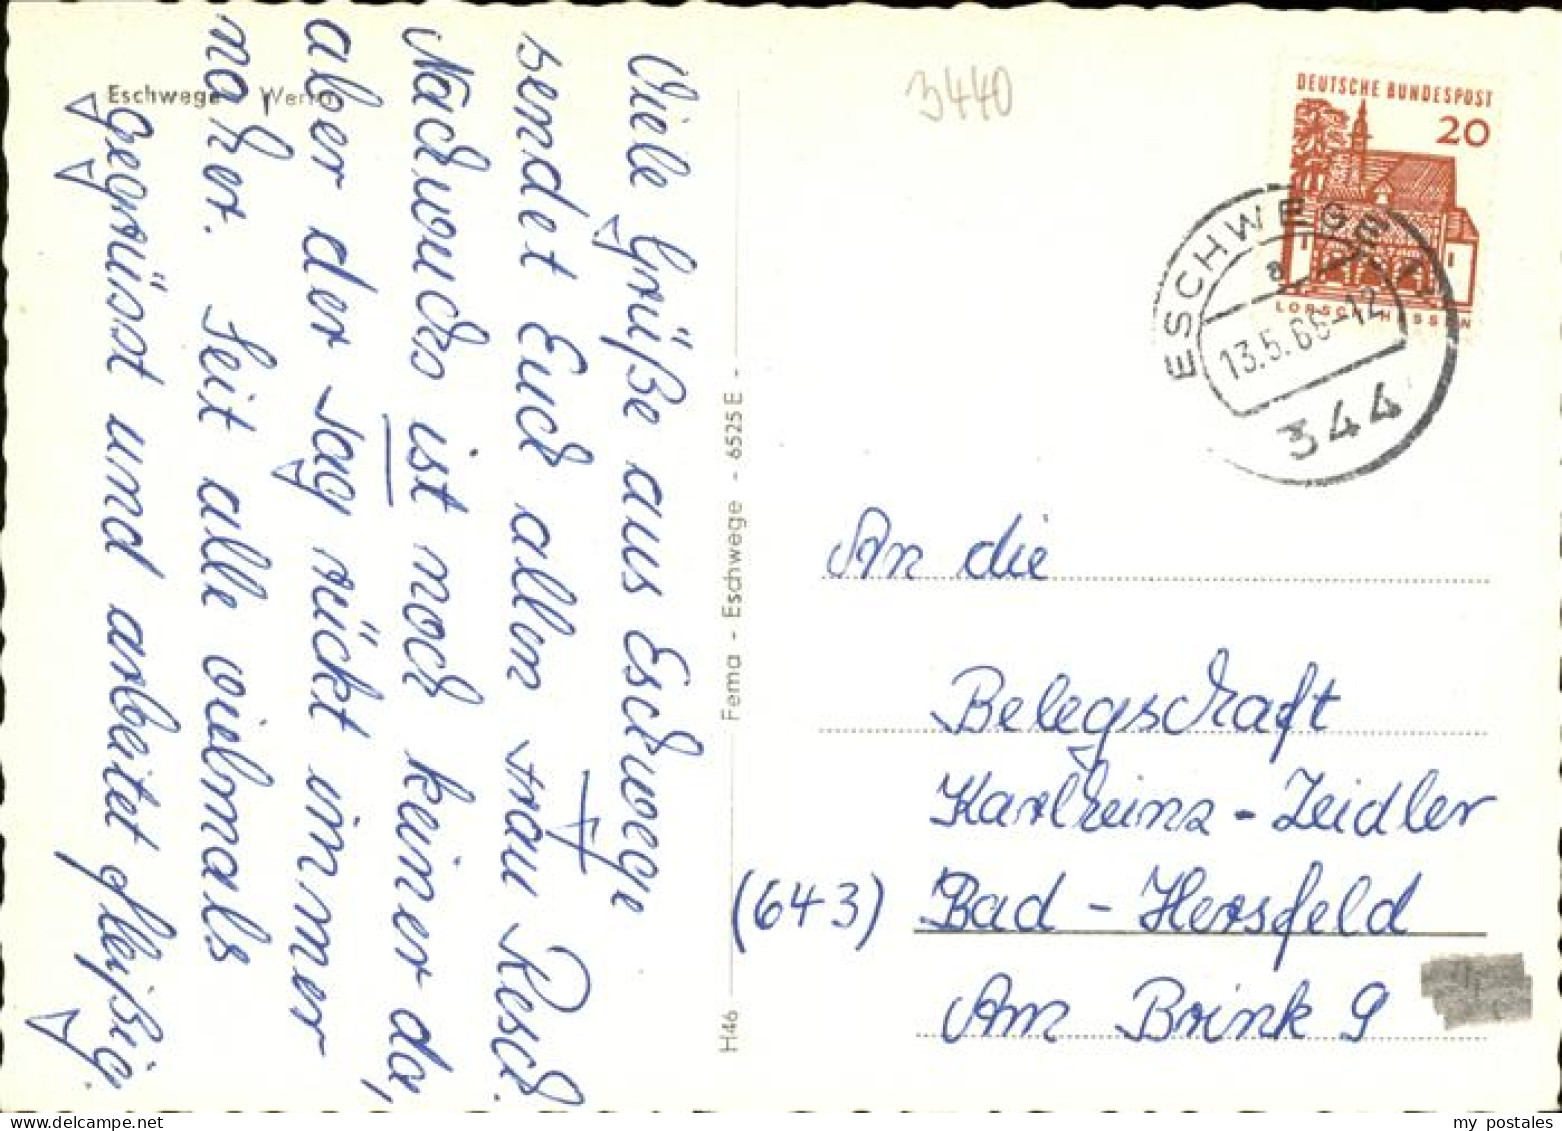 Eschwege Werra
Viele Grüße aus Eschwege
sendet Euch allen Frau Resch.
Nachwuchs ist noch keiner da,
aber der Tag rückt immer
näher. Seit alle vielmals
gegrüsst und arbeitet fleißig.
H46 Fema - Eschwege - 6525 E -
3440
DEUTSCHE BUNDESPOST
20
LORSCH HESSEN
ESCHWEGE 1
a
13.5.66-12
344
An die
Belegschaft
Karlheinz-Zeidler
(643) Bad-Hersfeld
Am Brink 9
my postales